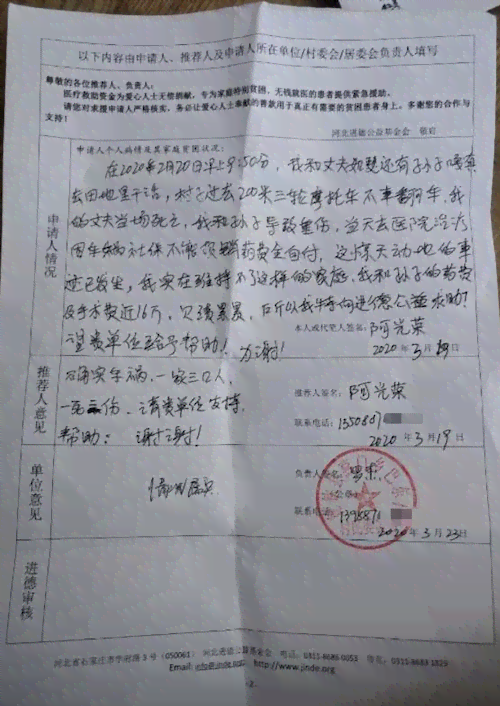 以下内容由申请人、推荐人及申请人所在单位/村委会/居委会负责人填写
尊敬的各位推荐人、负责人:
医疗救助资金为爱心人士无偿捐献,专为家庭特别贫困、无钱就医的患者提供紧急援助。
请您对求援申请人严格核实,务必让爱心人士奉献的善款用于真正有需要的贫困患者身上。多谢您的合作与
支持!
河北进德公益基金会 敬启
申请人个人病情及其家庭贫困状况:
在2020年2月20日早上9:50分,我和丈夫和慧还有孙子
去田地里干活,村子过去200米三轮摩托车不幸翻车,我
的丈夫当场死亡,我和孙子导致重伤,当天去医院治疗
因车祸社保不能报销药费全自付,这惊天动地的事
迹已发生,我实在维持不了这样的家庭,我和孙子的药费
及手术费近16万,欠债累累,所以我特向进德公益求助?
望贵单位给予帮助!为谢!
申请人情况
本人或代笔人签名:阿光荣
2020年3月19日
推荐人意见
确实车祸,一家三口人,
一死二伤,请贵单位支持
帮助: 谢谢!
推荐人签名:阿光荣
联系电话:135086
2020年3月19日
单位意见
情况属实
负责人签名:
联系电话:1398871
2020年3月23日
进德审核
河北省石家庄市学府路3号(050061) 河北进德公益基金会 电话:0311-8686 0053 传真:0311-8683 1829
Email: http://www.jinde.org
-2-